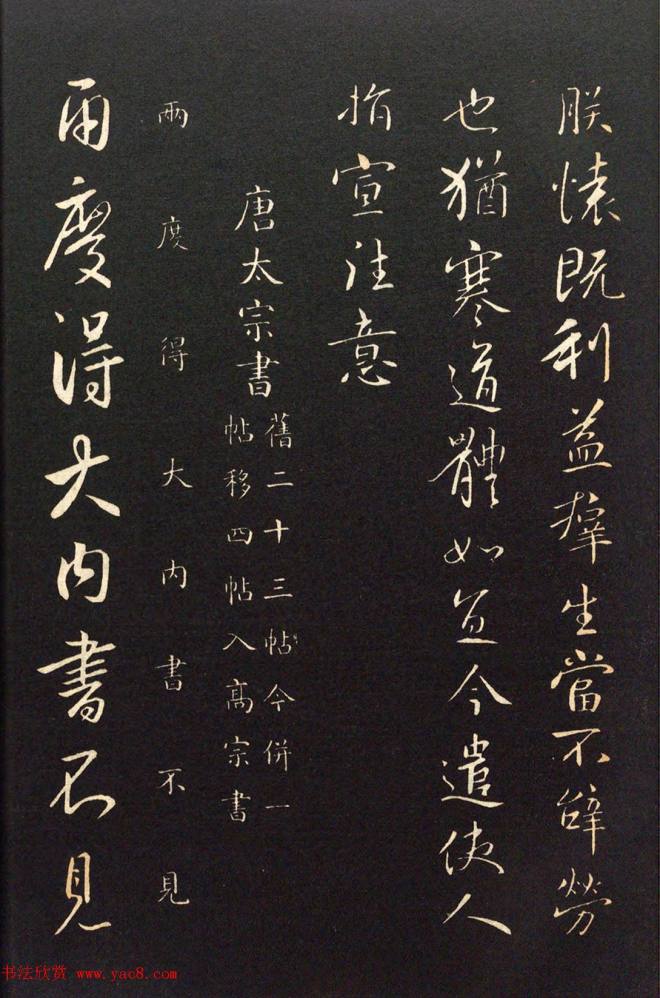 朕懷既利益群生當不辭勞
也猶寒道體如宜今遣使人
指宣往意
唐太宗書
舊二十三帖今併一
帖移四帖入高宗書
兩度得大内書不見
兩度得大内書不見
书法欣赏 www.yac8.com